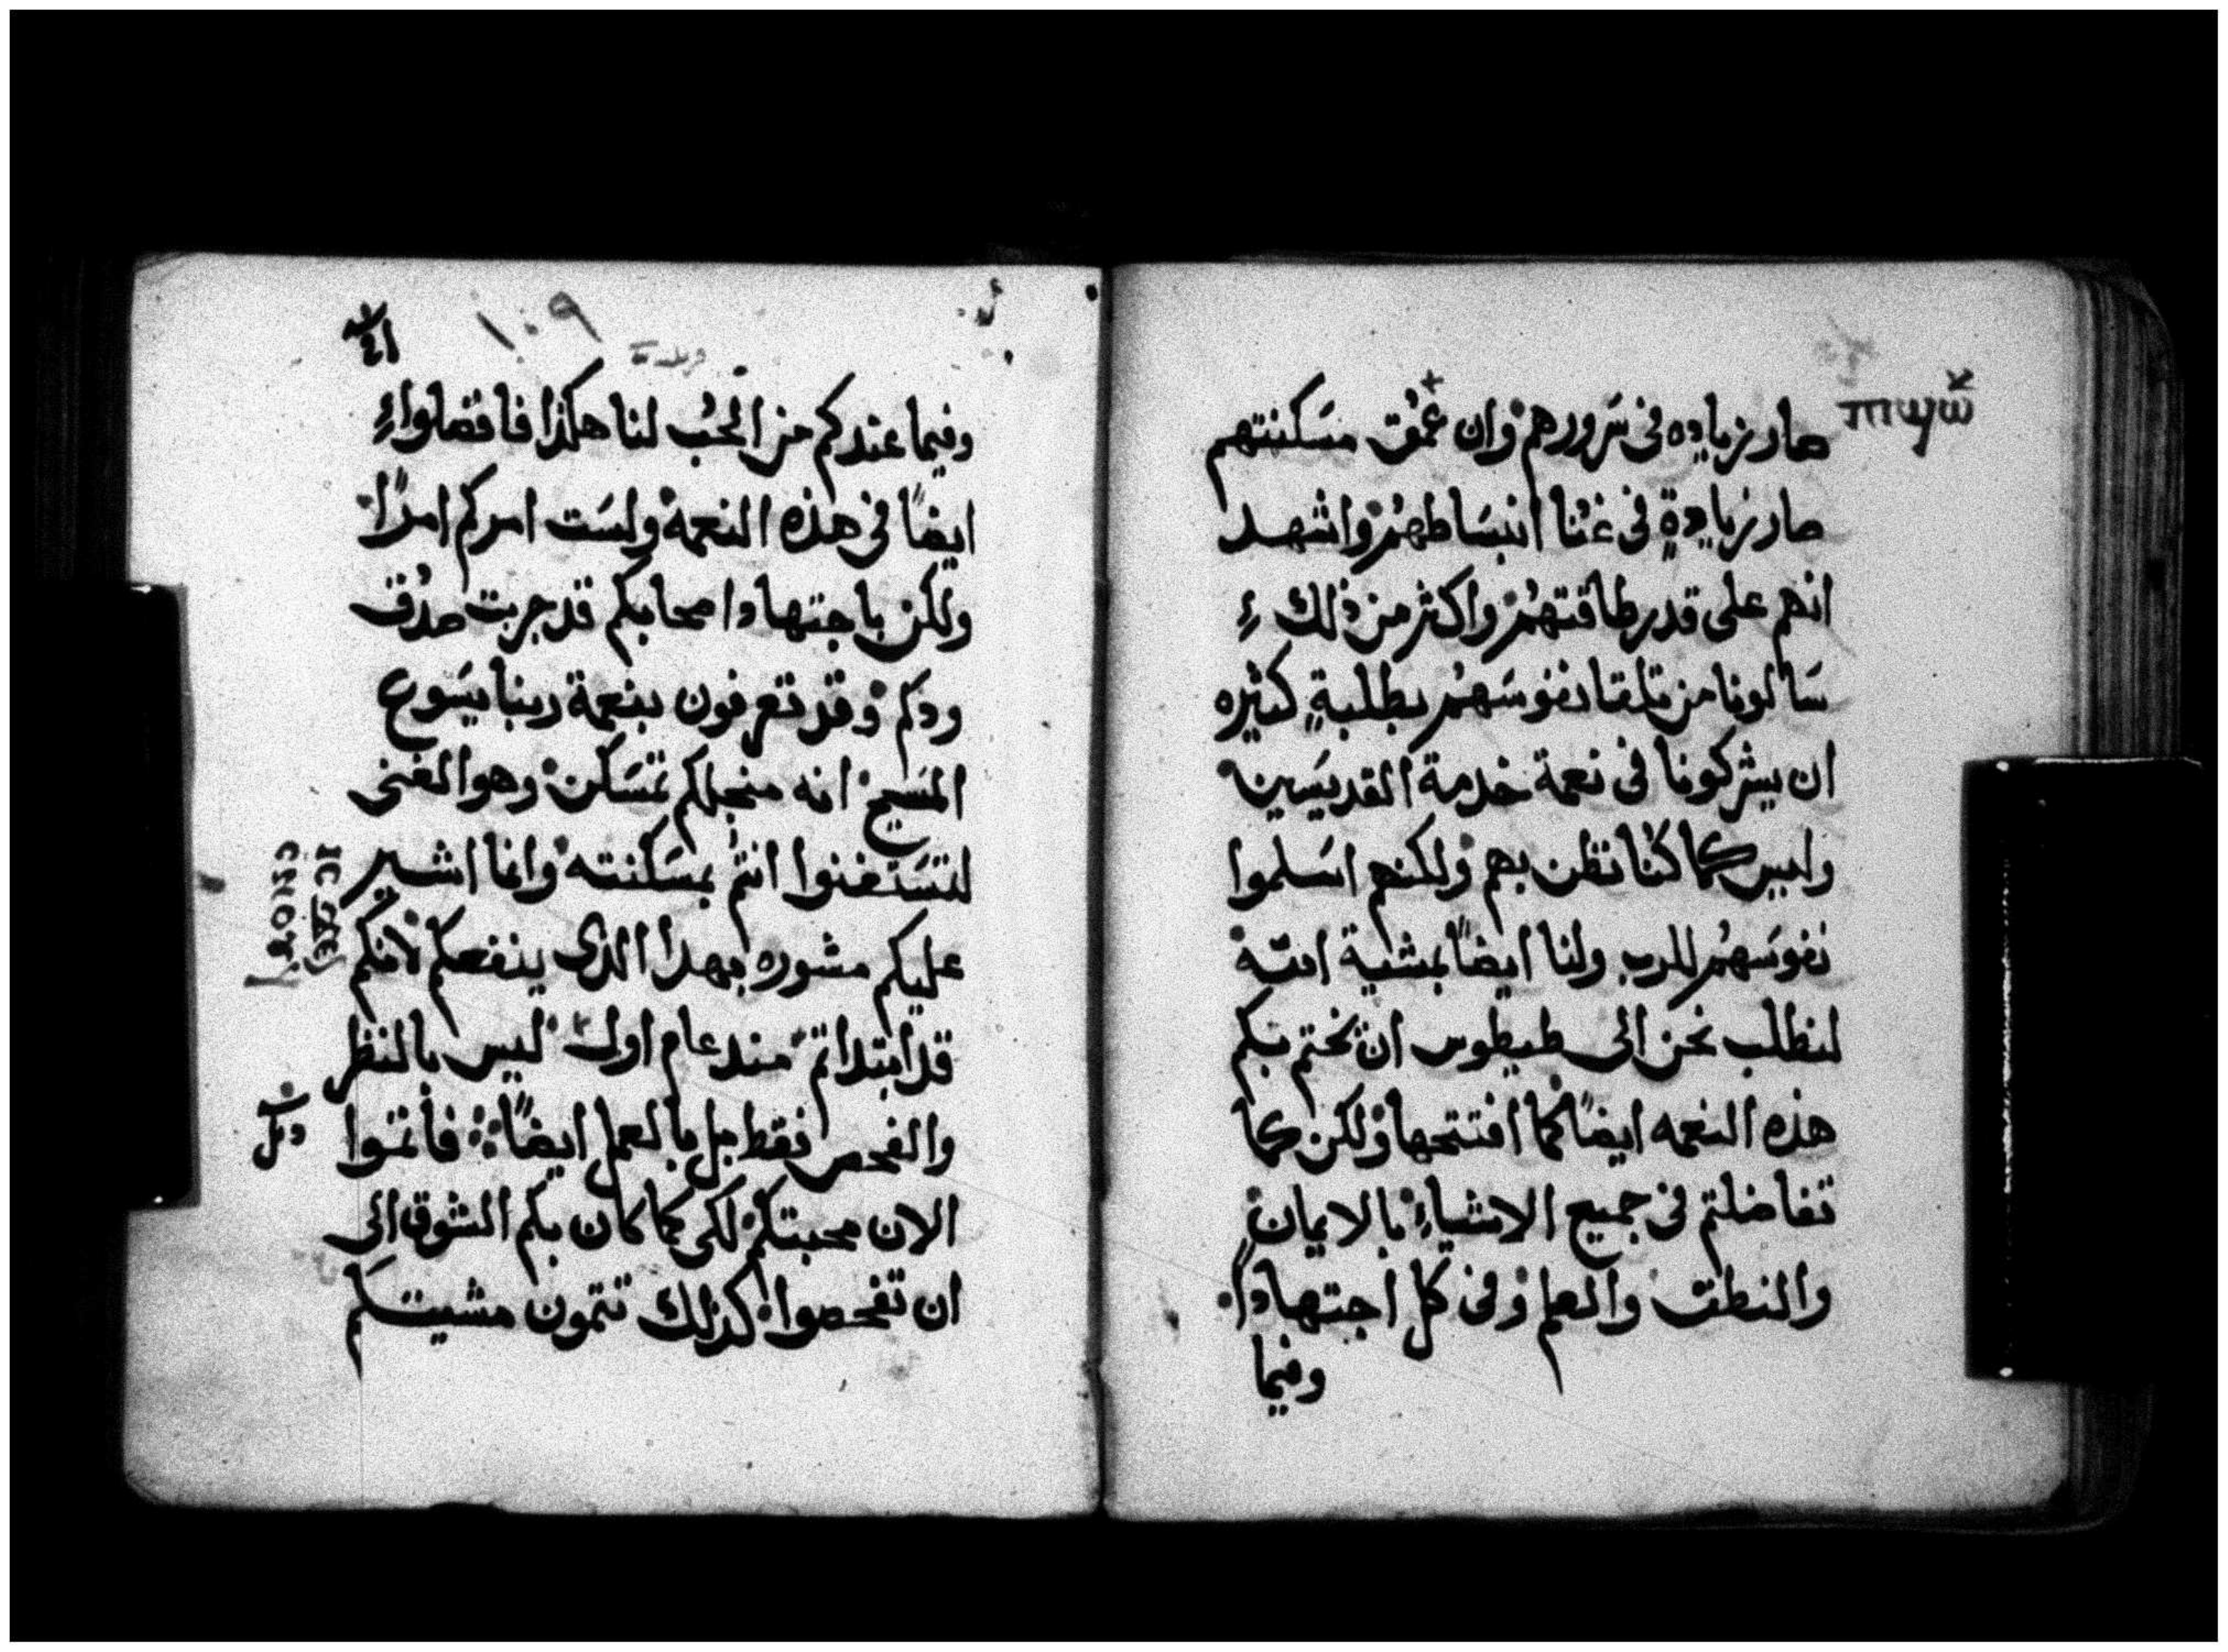 صار زياده فى سَرورهم وان عُمق مسَكنتهم
صار زيادةٍ فى غنا انبسَاطهُم واشهد
انهم على قدر طاقتهُم واكثر من ذلك
سَالونا من تلقا نفوسَهُم بطلبةٍ كثيره
ان يشركونا فى نعمة خدمة القديسَين
وليس كما كنا نظن بهم ولكنهم اسَلموا
نفوسَهُم للرب ولنا ايضًا بمشية الله
لنطلب نحن الى طيطوس ان يختم بكم
هذه النعمه ايضًا كما افتتحها ولكن كما
تفاضلتم فى جميع الاشياءِ بالايمان
والنطق والعلم وفى كل اجتهادًا
وفيما
١٠٩
وفيما عندكم من الحُب لنا هكذا فافضلوا
ايضًا فى هذه النعمة ولسَت امركم امرًا
ولكن باجتهاد اصحابكم قد جربت صدُق
ودكم وقد تعرفون بنعمة ربنا يسَوع
المسَيح انه منجلكم تمسَكن وهو الغنى
لتسَتغنوا انتم بمسَكنته وانما اشير
عليكم مشوره بهدا الدى ينفعكم لانكم
قد ابتداتم مند عام اول ليس بالنظر
والفحص فقط بل بالعمل ايضًا فاتموا
الان محبتكم لكى كما كان بكم الشوق الى
ان تفحصوا كذلك تتمون مشيتكم